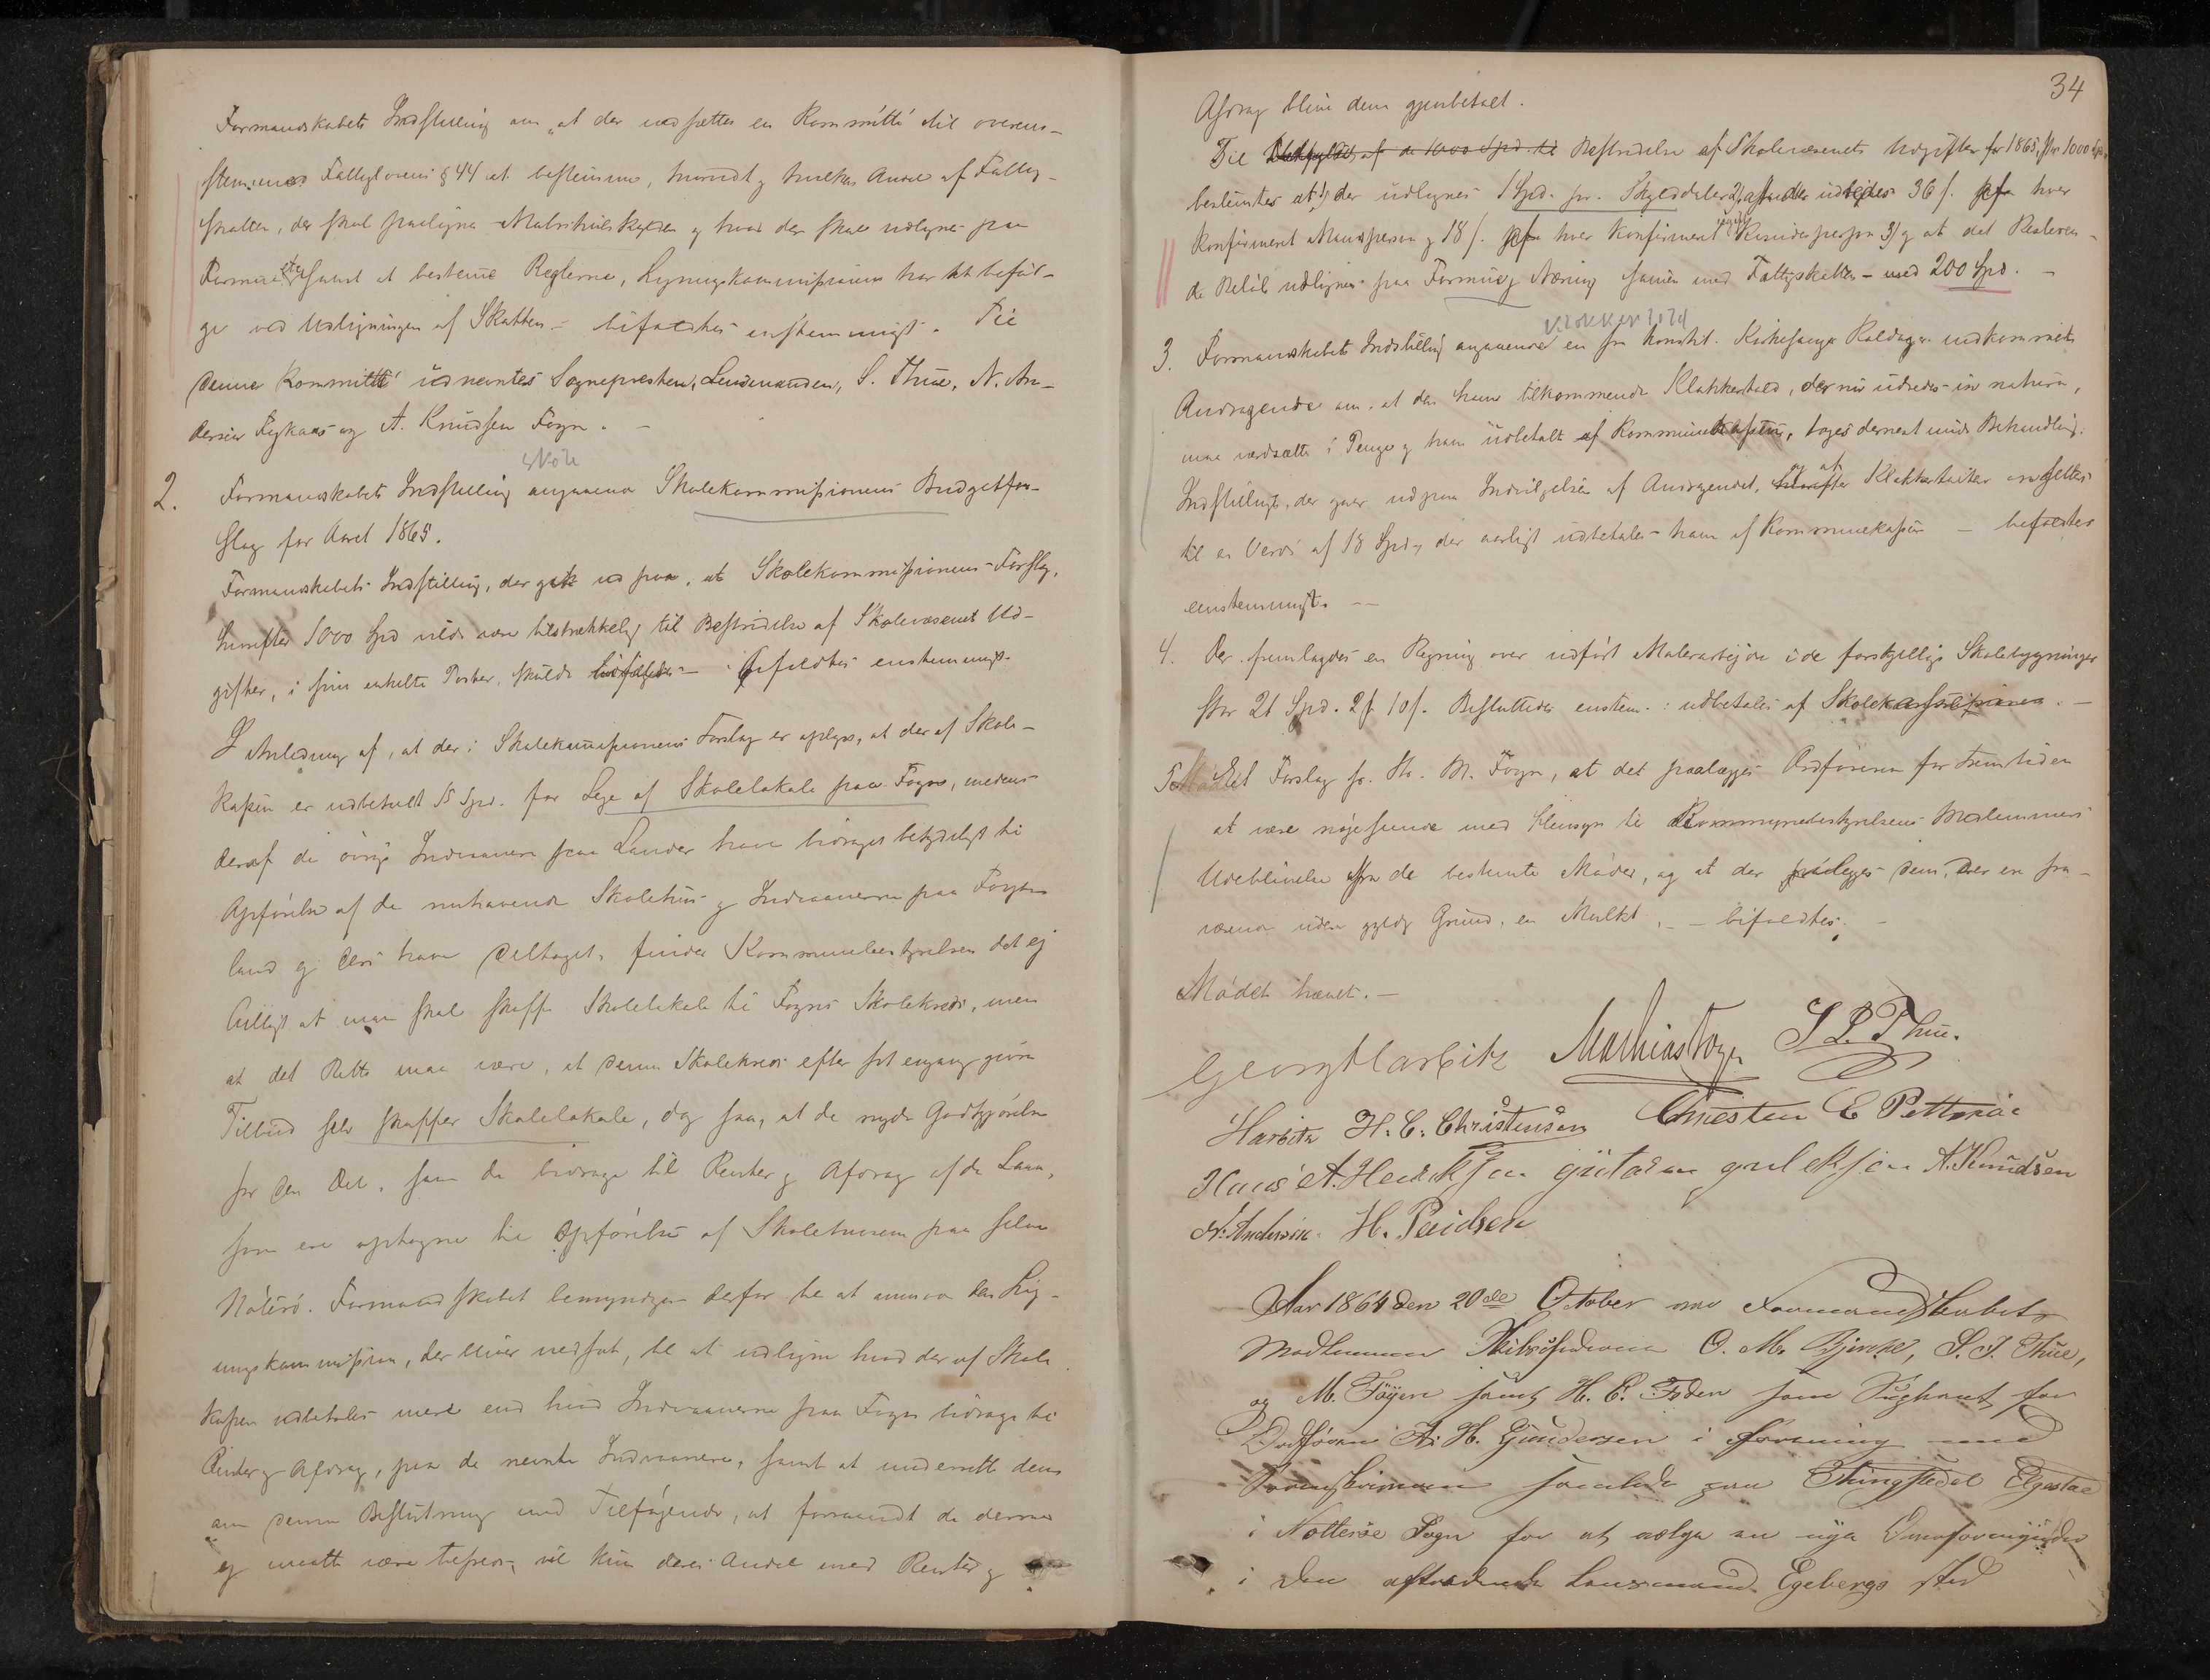 Formandskabets Indstilling om „at der nedsættes en Kommitté til overens-
stemmende Fattiglovens § 44 at bestemme, hvornidt og hvilken Andel af Fattig-
skatten, der skal paalignes Matrikulskylden og hvad der skal udlignes paa
Formue etc samt at bestemme Reglerne, Ligningskommissionen har at beføl-
ge ved Udligningen af Skatten – bifaldtes enstemmigt. Til
denne Kommitté udnevntes Sognepresten, Lensmanden, S. Thue, N. An-
dersen Føykaas og A. Knudsen Føyn. –
Skole
2. Formandskabets Indstilling angaaende Skolekommissionens Budgetfor-
slag for Aaret 1865.
Formandskabets Indstilling, der gik ud paa, at Skolekommissionens Forslag,
hvorefter 1000 Spd vilde være tilstrækkelig til Bestridelse af Skolevæsenets Ud-
gifter, i sine enkelte Poster, skulde bifaldes – bifaldtes enstemmigt.
I Anledning af, at der i Skolekommissionens Forslag er oplyst, at der af Skole-
kassen er udbetalt 15 Spd. for Leje af Skolelokale paa Føyen, medens
deraf de øvrige Indvaanere paa Landet have bidraget betydeligt til
Opførelse af de nuhavende Skolehuse og Indvaanerne paa Føyen
land ej deri have deltaget, finder Kommunebestyrelsen det ej
billigt at man skal skaffe Skolelokale til Føyns Skolekreds, men
at det Rette maa være, at denne Skolekreds efter sit engang givne
Tilbud selv skaffer Skolelokale, dog saa, at de nyde Godtgjørelse
for den Del, som de bidrage til Renter og Afdrag af de Laan,
som ere optagne til Opførelse af Skolehusene paa selve
Nøterø. Formandskabet bemyndiges derfor til at anmode den Lig-
ningskommission, der bliver nedsat, til at udligne hvad der af Skole
kassen udbetales mere end hvad Indvaanerne paa Føyn bidrage til
Renter og Afdrag, paa de nevnte Indvaanere, samt at underrette dem
om denne Beslutning med Tilføjende, at forsaavidt de dermed
ej maatte være tilfreds, vil kun deres Andel med Renter og
34
Afdrag blive dem gjenbetalt.
Til Udfyldes af de 1000 Spd. til Bestridelse af Skolevæsenets Udgifter for 1865, stor 1000 Spd.
bestemtes at 1) der udlignes 1 Spd. pr. Skylddaler 2) at der udredes 36 s. pr hver
konfirmeret Mandsperson og 18 s. pr hver konfirmeret Kvindesperson 3) og at det Resteren-
de Beløb udlignes paa Formue og Næring samen med Fattigskatten – med 200 Spd. –
Klokkertold
3. Formandskabets Indstilling angaaende en fra konstit. Kirkesanger Kaldager indkommet
Andragende om, at den ham tilkommende Klokkertold, der nu udredes in natura,
maa værdsættes i Penge og ham udbetalt af Kommunekassen, toges dernest under Behandling.
Indstilling, der gaar ud paa Indvilgelsen af Andragendet, hvorefter og at Klokkertolden ansettes
til en Verdi af 18 Spd, der aarligt udbetales ham af Kommunekassen – bifaldtes
enstemmigt. --
4. Der fremlagdes en Regning over udført Malerarbejde i de forskjellige Skolebygninger
stor 21 Spd. 2 s. 10 s. Besluttedes enstem.: udbetales af Skolekassen. –
5. Et Forslag fr. Hr. M. Føyn, at det paalægges Ordføreren for Fremtiden
at være nøjeseende med Hensyn til Kommunebestyrelsens Medlemmers
Udeblivelse fra de bestemte Møder, og at der pålegges dem, der ere fra-
værende uden gyldig Grund, en Mulkt. – bifaldtes. –
Mødet hævet. –
Georg Harbitz Mathias Føyn S L Thue.
Harbitz H. C. Christensen Christen E Pettersøe
Hans A. Henriksen Gustav gulleksen A. Knudsen
N. Andersen. H. Paulsen
Aar 1864 den 20de October var Formandskabets
Medlemmer O. M. Bjerke, S. L. Thue,
og M. Føyen samt H. E. Foden som Suppleant for
Ordføreren A. H. Gundersen i forening med
samlede paa Thingstedet Elgestad
i Nøtterøe Sogn for at vælge en nye Overformynder
i den aftrædende Lensmand Egebergs sted